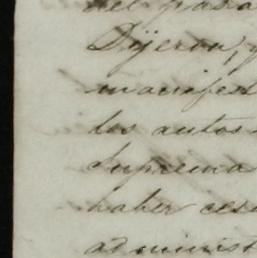 del pasa
Dijeron, y
manifest
los autos
Suprema
haber ces
administ